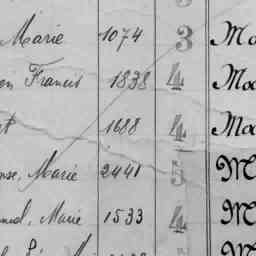 Marie 1074 3 Ma
en Francis 1838 4 Ma
t 1688 4 Ma
nse, Marie 2441 5 M
Marie 1533 4 M